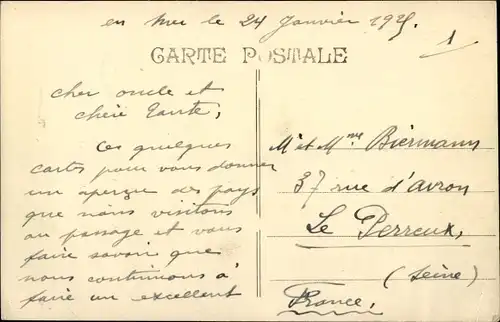 en mer le 24 Janvier 1925.
1
CARTE POSTALE
cher oncle et
chère tante,
Ces quelques
cartes pour vous donner
un aperçu des pays
que nous visitons
au passage et vous
faire savoir que
nous continuons à
faire un excellent
Mr et Mme Biermann
37 rue d'avron
Le Perreux,
(Seine)
France.